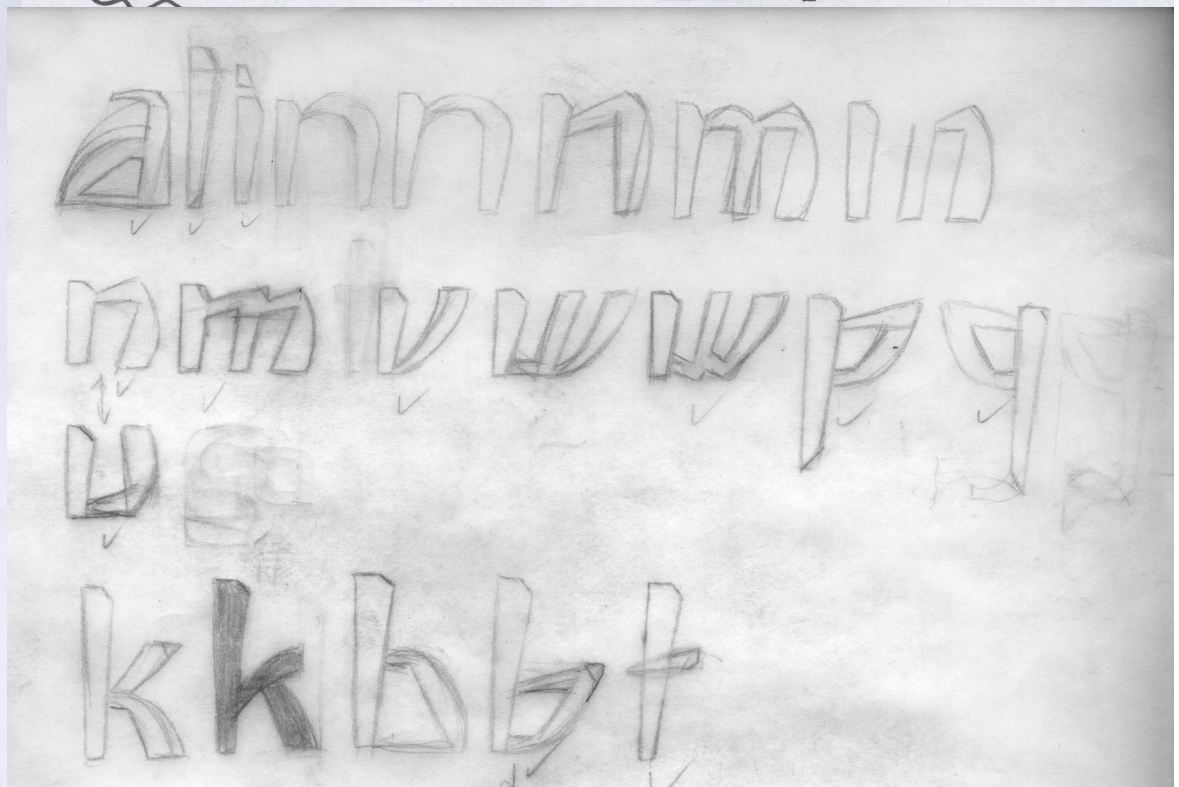 alinnnmın
nmvwwpq
u
kkbbt